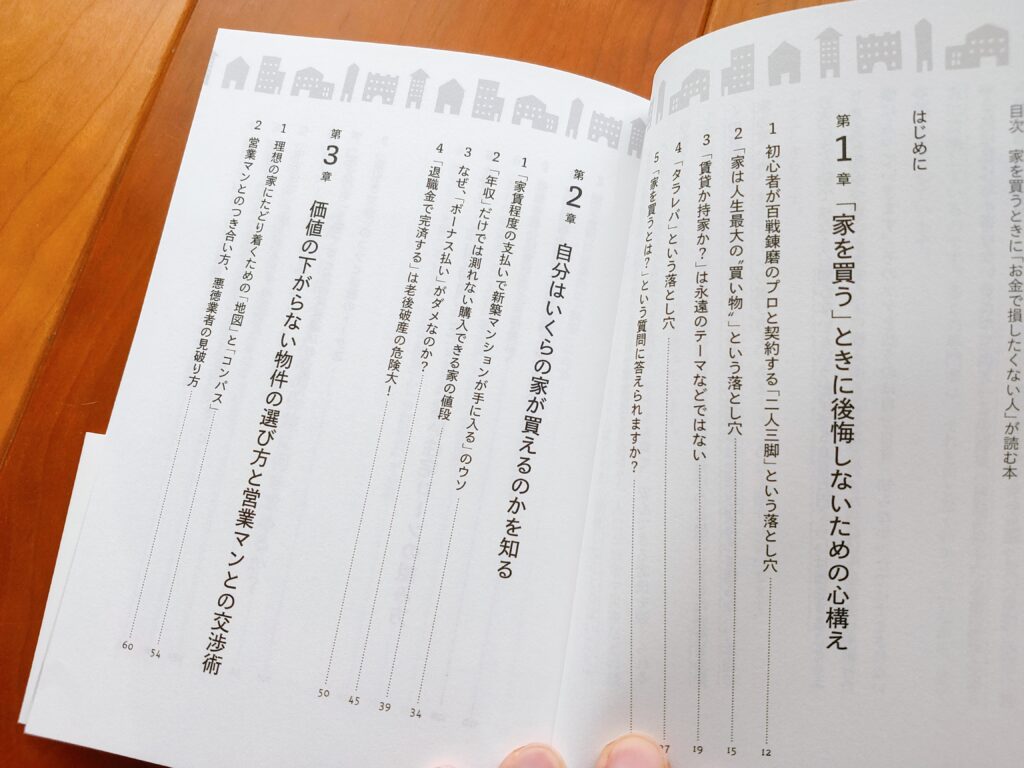 目次　家を買うときに「お金で損したくない人」が読む本
はじめに
第1章　「家を買う」ときに後悔しないための心構え
1　初心者が百戦錬磨のプロと契約する「二人三脚」という落とし穴……12
2　「家は人生最大の〝買い物〟」という落とし穴……15
3　「賃貸か持家か?」は永遠のテーマなどではない……19
4　「タラレバ」という落とし穴……27
5　「家を買うとは?」という質問に答えられますか?……
第2章　自分はいくらの家が買えるのかを知る
1　「家賃程度の支払いで新築マンションが手に入る」のウソ……34
2　「年収」だけでは測れない購入できる家の値段……39
3　なぜ、「ボーナス払い」がダメなのか?……45
4　「退職金で完済する」は老後破産の危険大!……50
第3章　価値の下がらない物件の選び方と営業マンとの交渉術
1　理想の家にたどり着くための「地図」と「コンパス」……54
2　営業マンとのつき合い方、悪徳業者の見破り方……60